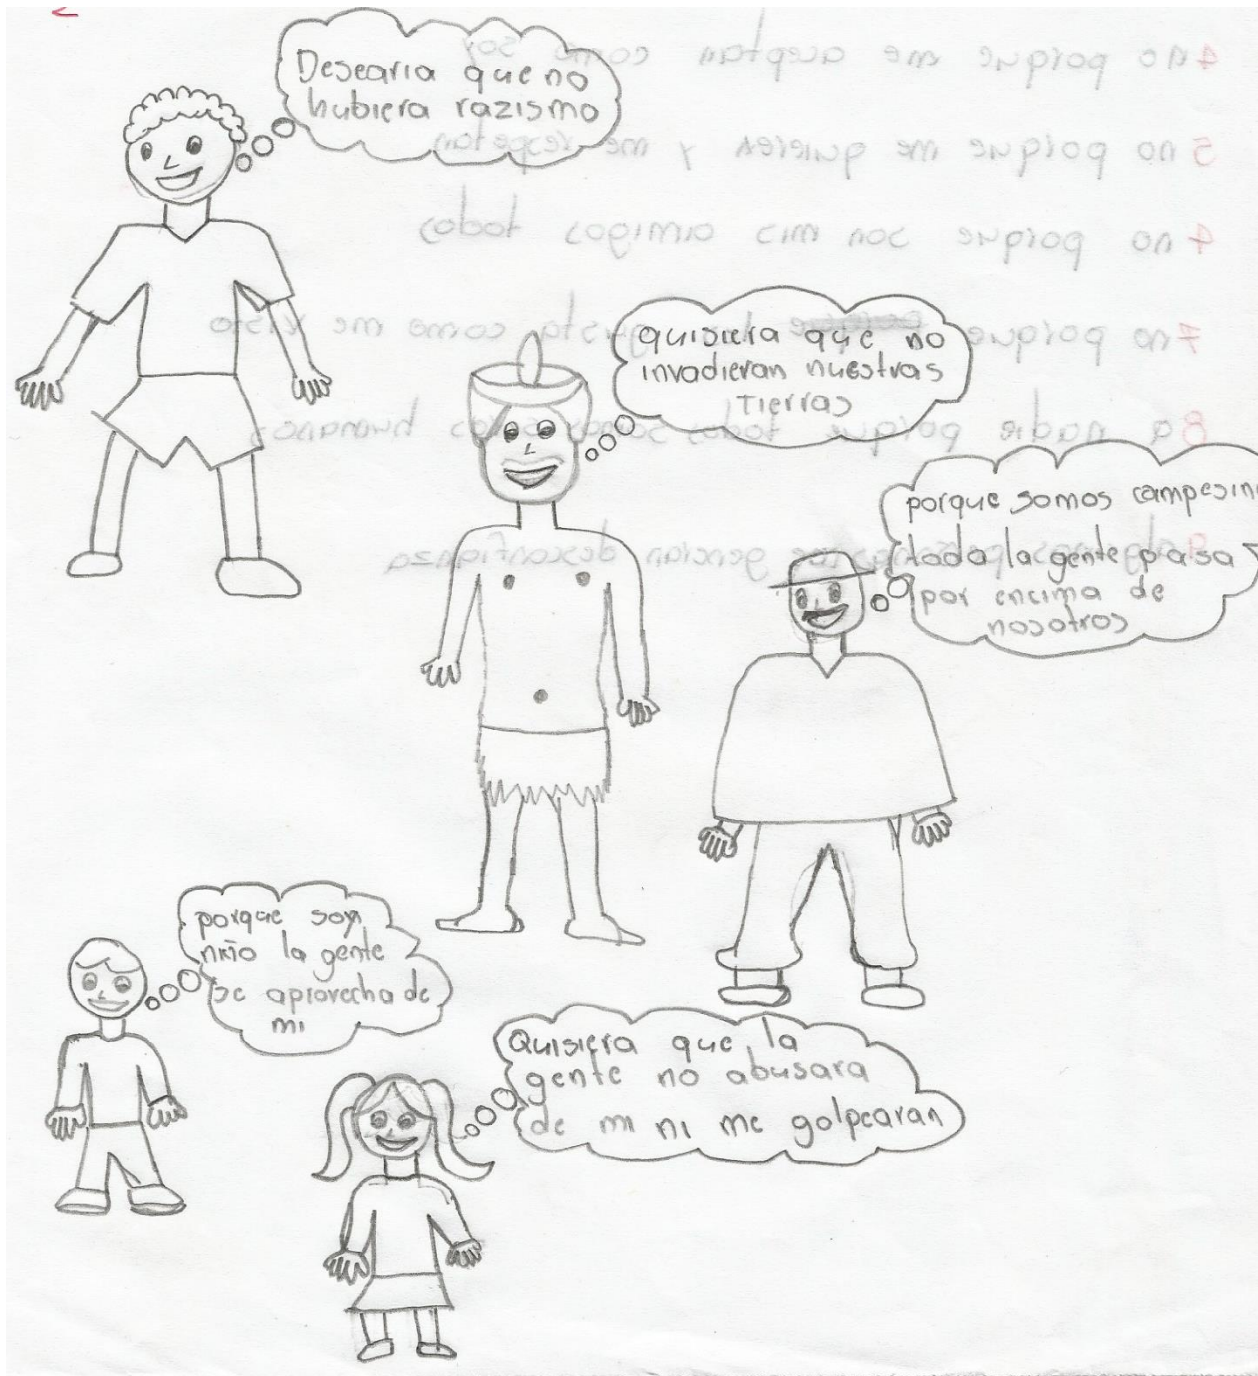 Desearia que no
hubiera razismo
quisiera que no
invadieran nuestras
tierras
porque somos campesin
toda la gente pasa
por encima de
nosotros
porque soy
niño la gente
se aprovecha de
mi
Quisiera que la
gente no abusara
de mi ni me golpearan